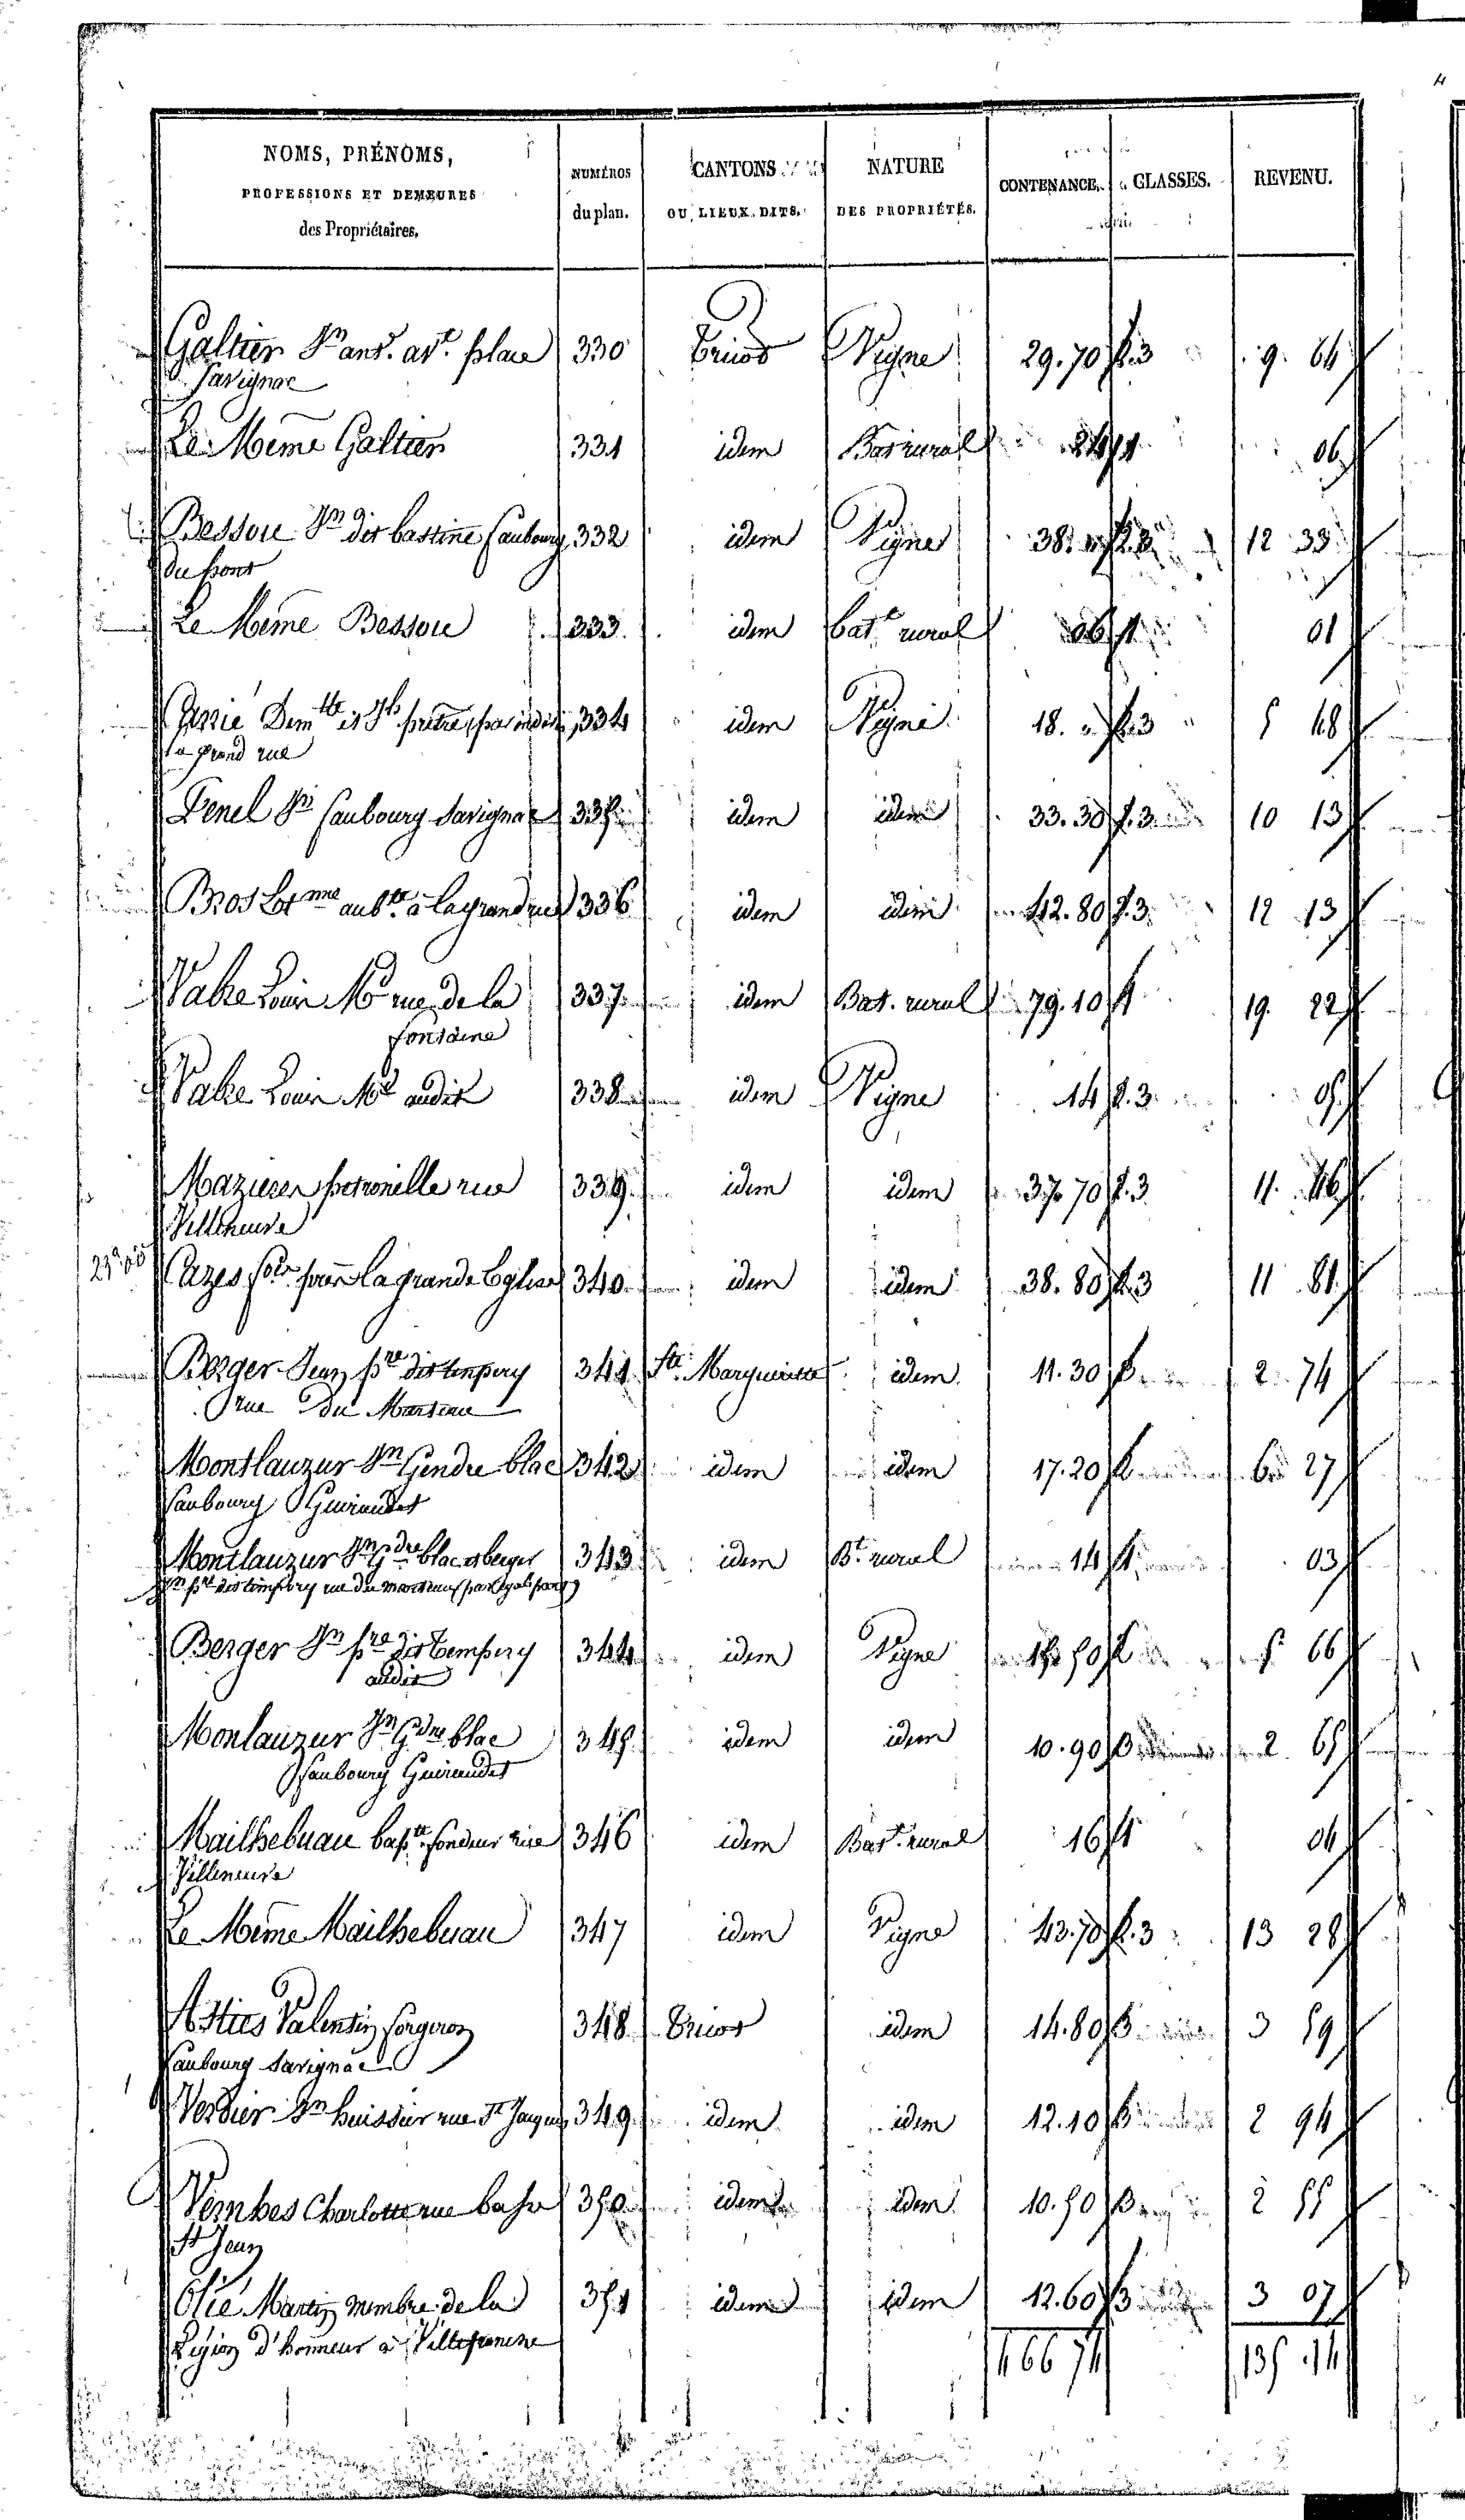 NOMS, PRÉNOMS, PROFESSIONS ET DEMEURES des Propriétaires. NUMÉROS du plan. CANTONS OU LIEUX DITS. NATURE DES PROPRIÉTÉS. CONTENANCE. CLASSES. REVENU.
Galtier place 330 Vigne 29.70 2.3 9. 64
Savignac
Le Meme Galtier 331 idem Bat rural 06
Bessou Jn dit bastine faubourg 332 idem Vigne 38. 12 33
du pont
Le Meme Bessou 333 idem batt rural 06 1 01
334 idem Vigne 18. 2.3 5 48
la grand rue
Fenel Jn faubourg Savignac 335 idem idem 33.30 2.3 10 13
Bros aubte a la grand rue 336 idem idem 42.80 2.3 12 13
Louis Md rue de la 337 idem Bat. rural 79.10 1 19. 22
fontaine
Louis Md audit 338 idem Vigne 14 2.3 05
Mazieres petronille rue 339 idem idem 37 70 2.3 11. 46
Villeneuve
23.05 Cazes la grande Eglise 340 idem idem 38.80 2.3 11 81
Berger Jean pre dit tempery 341 Ste Marguerite idem 11.30 3 2 74
rue Du Marteau
Montlauzur Jn Gendre blac 342 idem idem 17.20 2 6 27
faubourg Guiraudet
Montlauzur Jn Gdre blac et berger 343 idem Bt rural 14 1 03
Jn pre dit tempery rue du marteau par egal part
Berger Jn pre dit tempery 344 idem Vigne 15 50 2 5 66
audit
Monlauzur Jn Gdre blac 345 idem idem 10.90 3 2 65
faubourg Guiraudet
Mailhebuau bapte fondeur rue 346 idem Bat. rural 16 1 04
Villeneuve
Le Meme Mailhebuau 347 idem Vigne 43.70 2.3 13 28
Valentin forgeron 348 idem 14.80 3 3 59
faubourg Savignac
Verdier Jn huissier rue St Jacques 349 idem idem 12.10 3 2 94
Vernhes Charlotte rue basse 350 idem idem 10.50 3 2 55
St Jean
Olié Martin membre de la 351 idem idem 12.60 3 3 07
Legion d'honneur a Villefranche
4 66 74 135 14